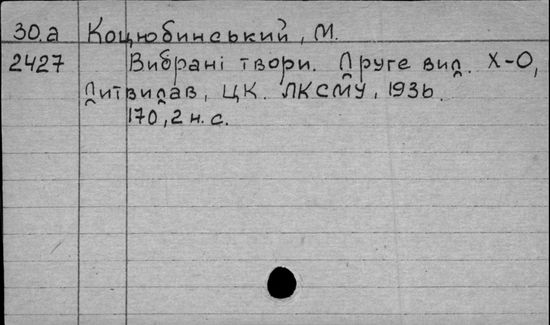 30.а Коцюбинський, М.
2427 Вибрані твори. Друге вид. Х-О,
Дитвидав, ЦК ЛКСМУ, 1936.
170, 2 н. с.